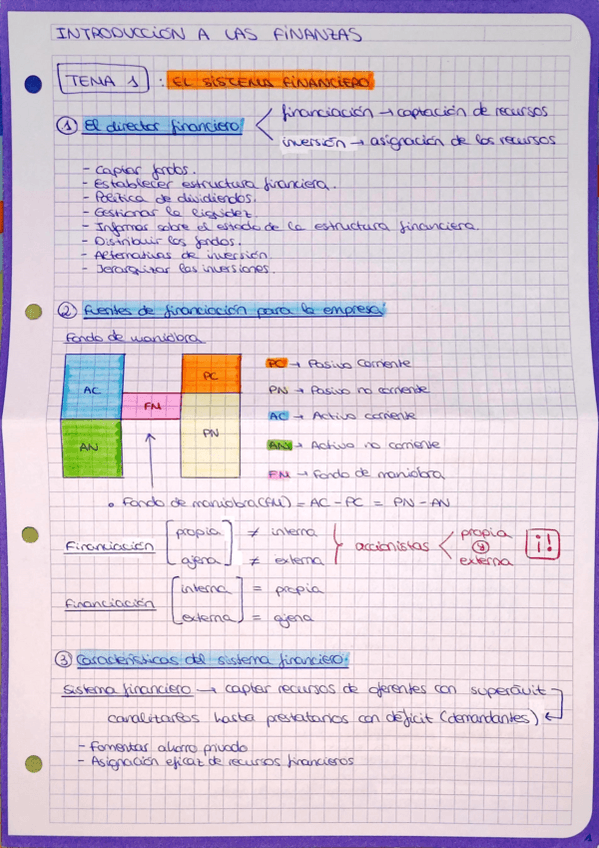 INTRODUCCIÓN A LAS FINANZAS
TEMA 1 : EL SISTEMA FINANCIERO
① El director financiero < financiación → captación de recursos
inversión → asignación de los recursos
- Captar fondos.
- Establecer estructura financiera.
- Política de dividendos.
- Gestionar la liquidez.
- Informar sobre el estado de la estructura financiera.
- Distribuir los fondos.
- Alternativas de inversión.
- Jerarquizar las inversiones.
② Fuentes de financiación para la empresa:
Fondo de maniobra
AC
FM
PC
AN
PN
PC → Pasivo Corriente
PN → Pasivo no corriente
AC → Activo corriente
AN → Activo no corriente
FM → Fondo de maniobra
• Fondo de maniobra (FM) = AC - PC = PN - AN
Financiación [propia ≠ interna
ajena] ≠ externa } accionistas < propia y externa ¡!
Financiación [interna = propia
externa] = ajena
③ Características del sistema financiero:
Sistema financiero → captar recursos de oferentes con superávit
canalizarlos hasta prestatarios con déficit (demandantes) ←
- Fomentar ahorro privado
- Asignación eficaz de recursos financieros
1